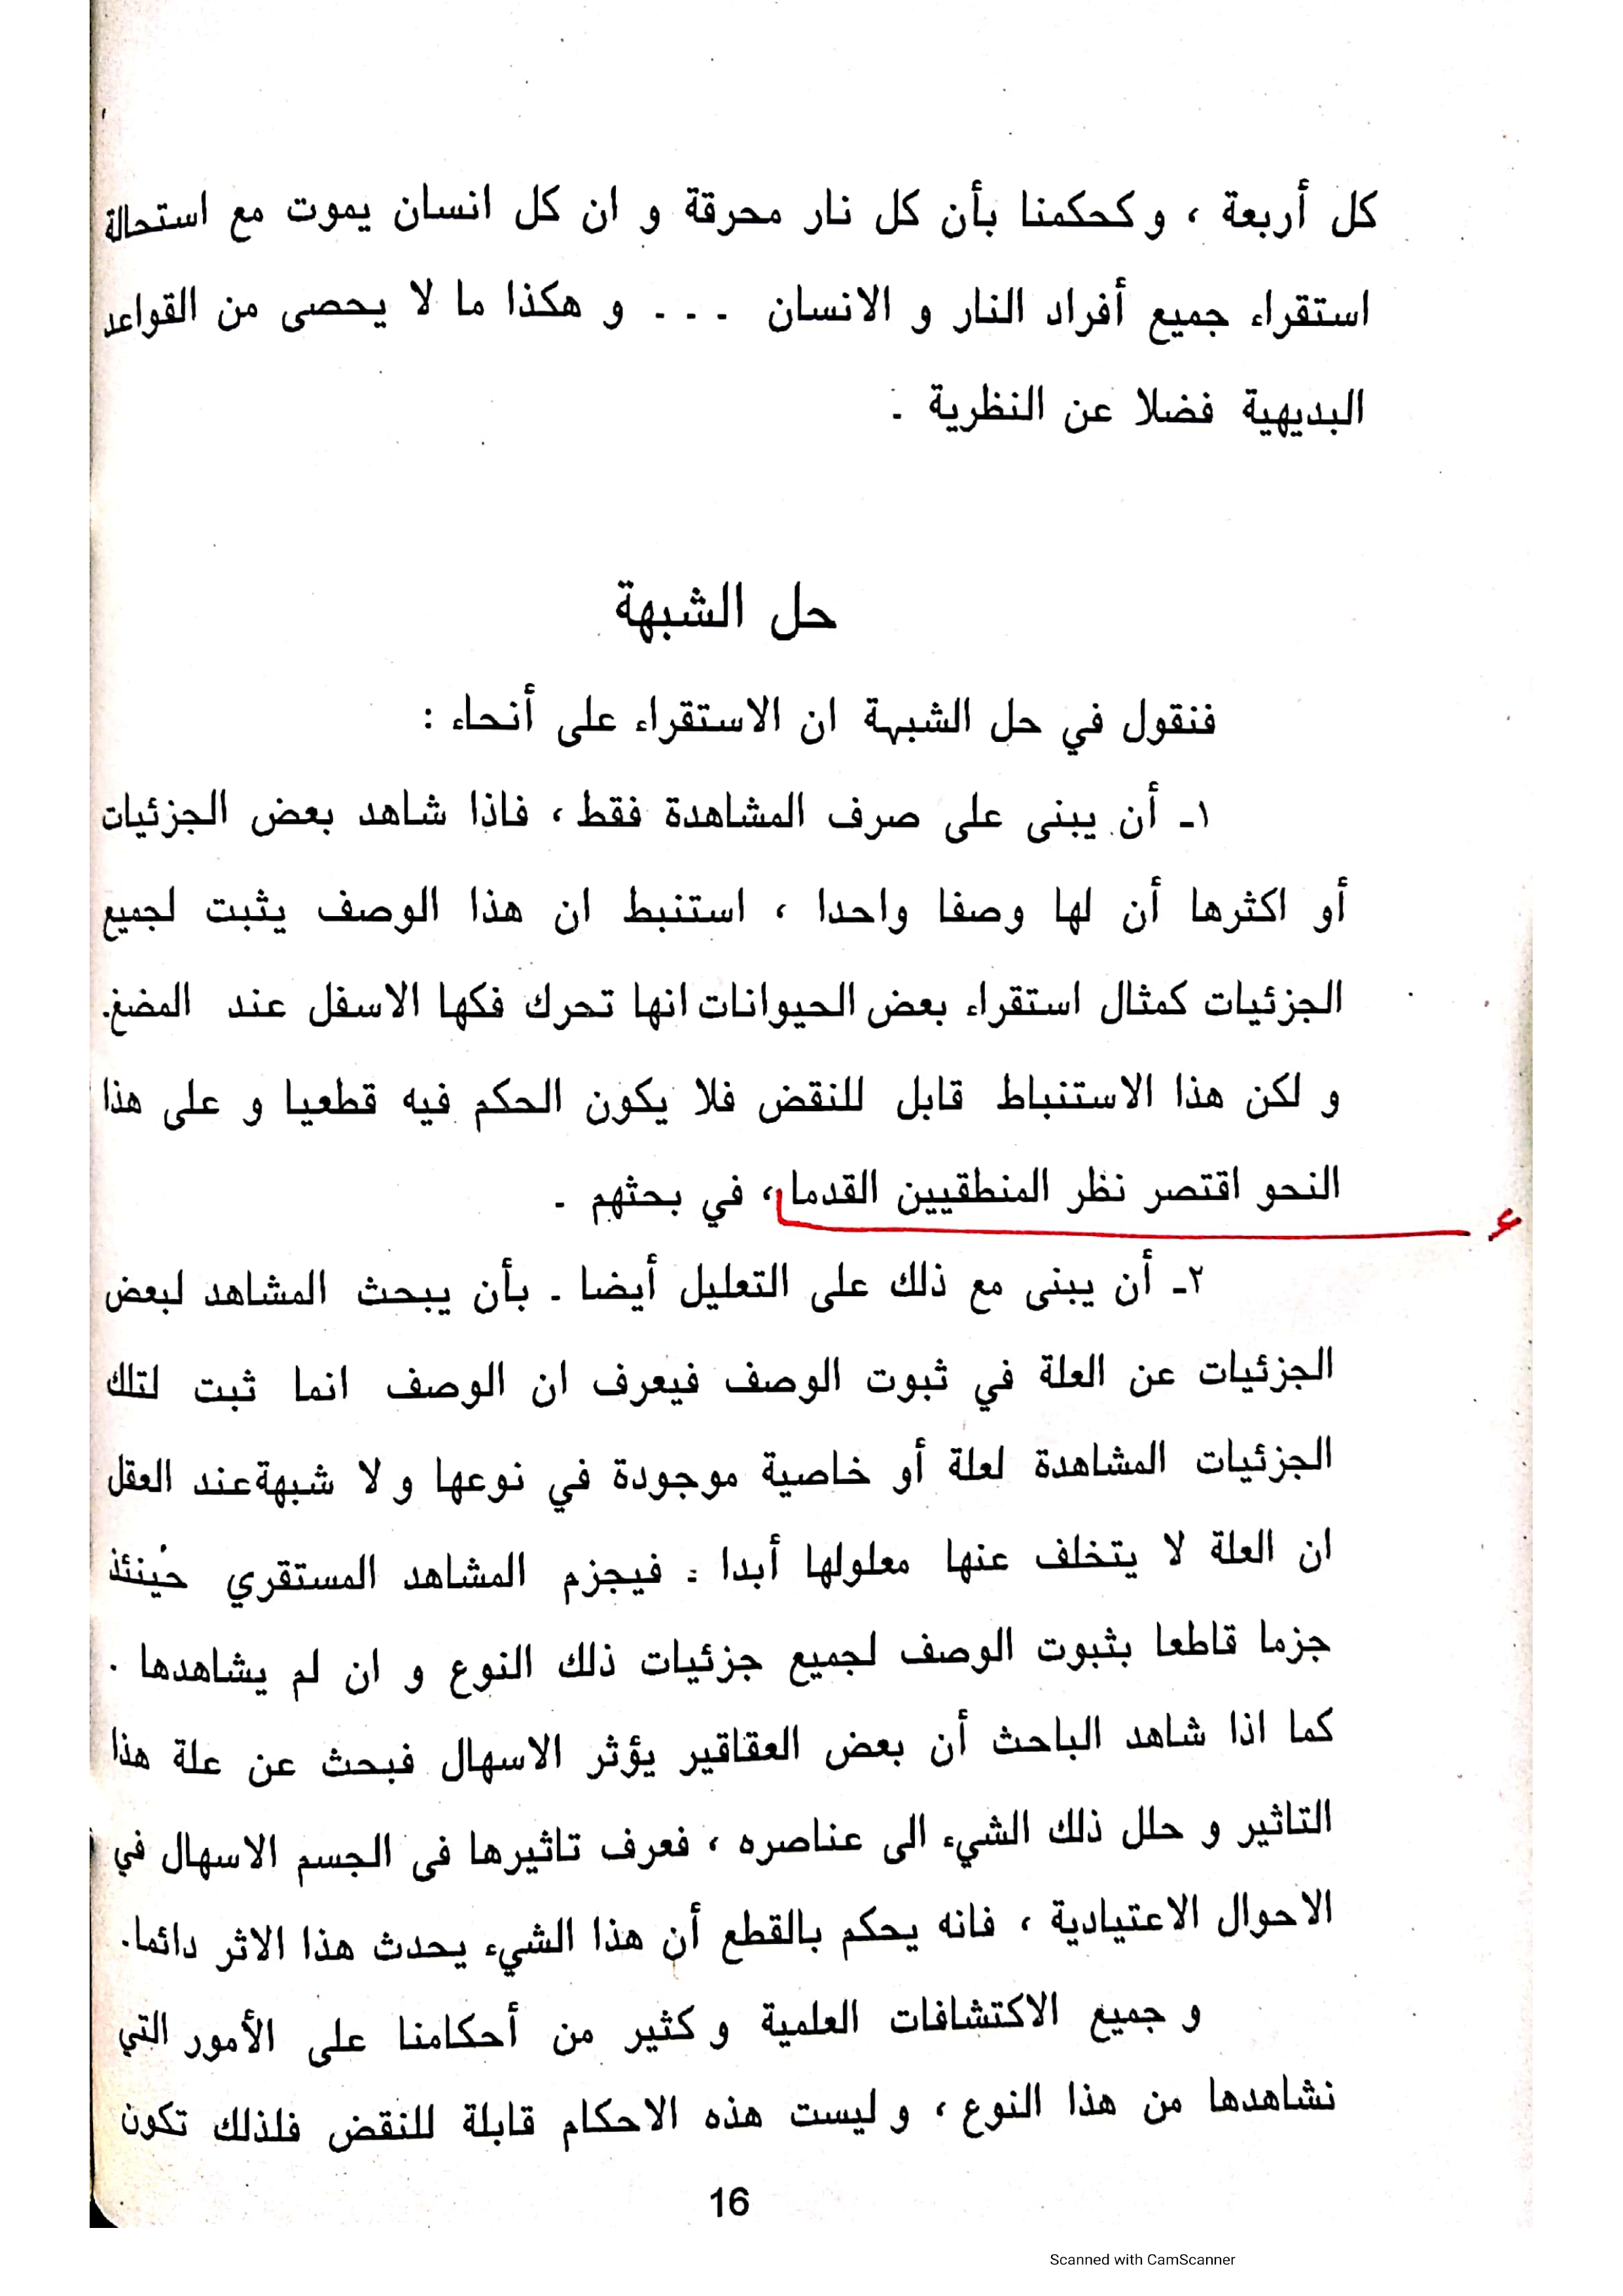 كل أربعة ، و كحكمنا بأن كل نار محرقة و ان كل انسان يموت مع استحالة
استقراء جميع أفراد النار و الانسان . . . و هكذا ما لا يحصى من القواعد
البديهية فضلا عن النظرية .
حل الشبهة
فنقول في حل الشبهة ان الاستقراء على أنحاء :
١ـ أن يبنى على صرف المشاهدة فقط ، فاذا شاهد بعض الجزئيات
أو اكثرها أن لها وصفا واحدا ، استنبط ان هذا الوصف يثبت لجميع
الجزئيات كمثال استقراء بعض الحيوانات انها تحرك فكها الاسفل عند المضغ.
و لكن هذا الاستنباط قابل للنقض فلا يكون الحكم فيه قطعيا و على هذا
النحو اقتصر نظر المنطقيين القدما، في بحثهم .
ء
٢ـ أن يبنى مع ذلك على التعليل أيضا . بأن يبحث المشاهد لبعض
الجزئيات عن العلة في ثبوت الوصف فيعرف ان الوصف انما ثبت لتلك
الجزئيات المشاهدة لعلة أو خاصية موجودة في نوعها و لا شبهة عند العقل
ان العلة لا يتخلف عنها معلولها أبدا . فيجزم المشاهد المستقري حينئذ
جزما قاطعا بثبوت الوصف لجميع جزئيات ذلك النوع و ان لم يشاهدها .
كما اذا شاهد الباحث أن بعض العقاقير يؤثر الاسهال فبحث عن علة هذا
التاثير و حلل ذلك الشيء الى عناصره ، فعرف تاثيرها فى الجسم الاسهال في
الاحوال الاعتيادية ، فانه يحكم بالقطع أن هذا الشيء يحدث هذا الاثر دائما.
و جميع الاكتشافات العلمية و كثير من أحكامنا على الأمور التي
نشاهدها من هذا النوع ، و ليست هذه الاحكام قابلة للنقض فلذلك تكون
16
Scanned with CamScanner